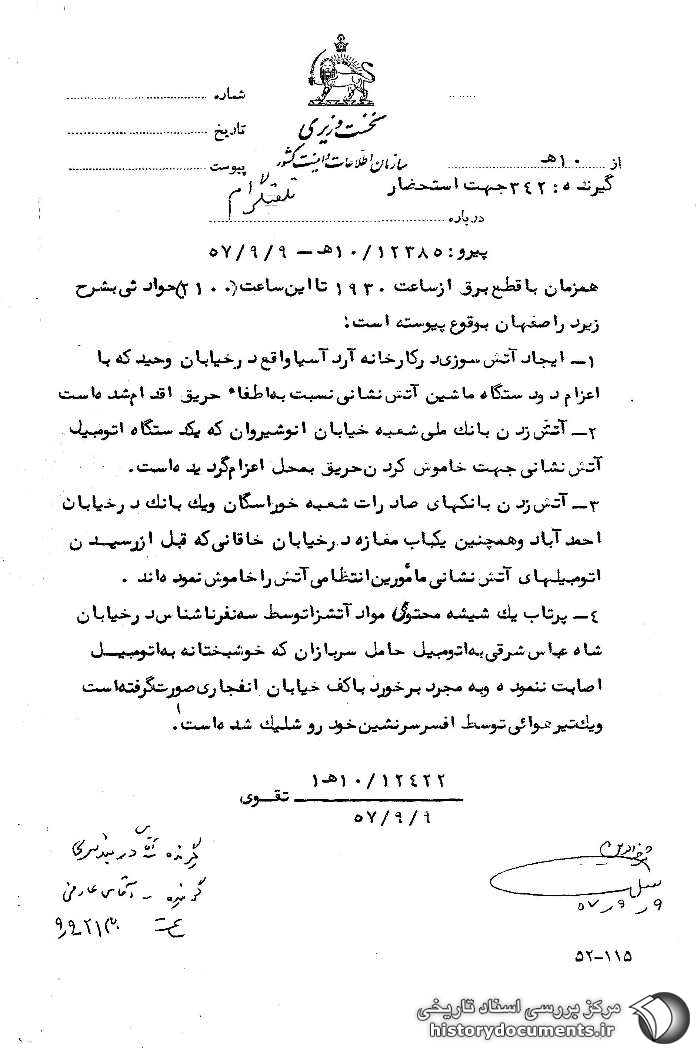 نخست وزیری
سازمان اطلاعات و امنیت کشور
شماره
تاریخ
پیوست
از ۱۰هـ
گیرنده: ۳۴۲ جهت استحضار
تلفنگرام
درباره
پیرو: ۱۰/۱۲۳۸۵هـ – ۵۷/۹/۹
همزمان با قطع برق از ساعت ۱۹۳۰ تا این ساعت (۲۱۰۰) حوادثی بشرح
زیر در اصفهان بوقوع پیوسته است:
۱– ایجاد آتش سوزی در کارخانه آرد آسیا واقع در خیابان وحید که با
اعزام دو دستگاه ماشین آتش نشانی نسبت به اطفاء حریق اقدام شده است
۲– آتش زدن بانک ملی شعبه خیابان انوشیروان که یکدستگاه اتومبیل
آتش نشانی جهت خاموش کردن حریق بمحل اعزام گردیده است.
۳– آتش زدن بانکهای صادرات شعبه خوراسگان ویک بانک در خیابان
احمد آباد وهمچنین یکباب مغازه در خیابان خاقانی که قبل از رسیدن
اتومبیلهای آتش نشانی مأمورین انتظامی آتش را خاموش نموده اند .
۴– پرتاب یک شیشه محتوی مواد آتشزا توسط سه نفر ناشناس در خیابان
شاه عباس شرقی به اتومبیل حامل سربازان که خوشبختانه به اتومبیل
اصابت ننموده وبه مجرد برخورد با کف خیابان انفجاری صورت گرفته است
ویک تیر هوائی توسط افسر سرنشین خودرو شلیک شده است.
۱۰/۱۲۴۲۲هـ ۱
تقوی
۵۷/۹/۹
گیرنده
گوینده – آقای عارفی
ساعت ۲۱۳۰ ۹/۹
۵۷/۹/۹
۵۲-۱۱۵
مرکز بررسی اسناد تاریخی
historydocuments.ir